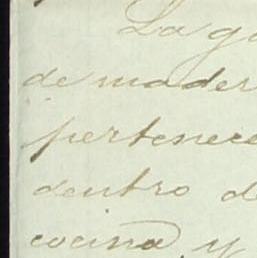 La g
de mader
pertenece
dentro d
cocina, y